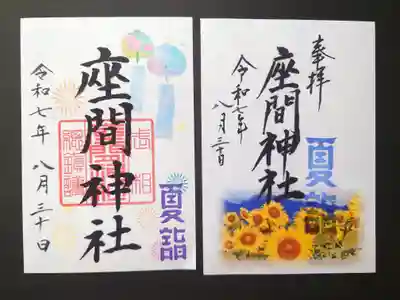 座間神社
令和七年 八月三十日
夏詣
奉拝
座間神社
令和七年
八月三十日
夏詣